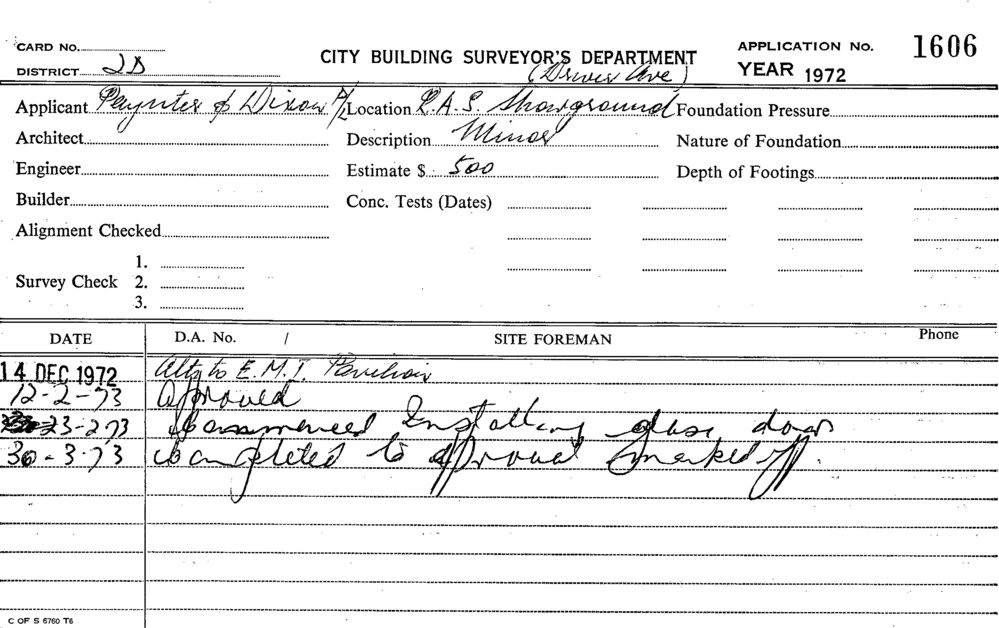 CARD NO. CITY BUILDING SURVEYOR'S DEPARTMENT APPLICATION No. 1606
DISTRICT 2D (Driver Ave) YEAR 1972
Applicant Paynter & Dixon P/L Location R.A.S. Showground Foundation Pressure
Architect Description Minor Nature of Foundation
Engineer Estimate $ 500 Depth of Footings
Builder Conc. Tests (Dates)
Alignment Checked
1.
Survey Check 2.
3.
DATE D.A. No. / SITE FOREMAN Phone
14 DEC 1972 Alts to E.M.I. Pavilion
12-2-73 Approved
23-2-73 Commenced Installing glass doors
30-3-73 Completed to approval marked off.
C OF S 6760 T6